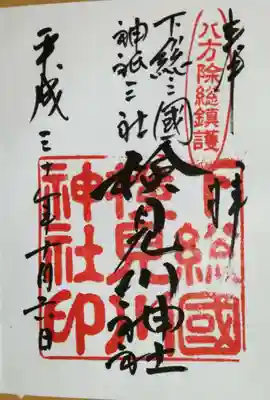 奉拝
八方除総鎮護
下総之國
神祇三社
検見川神社
平成三十年十月日
下総國
検見川
神社印